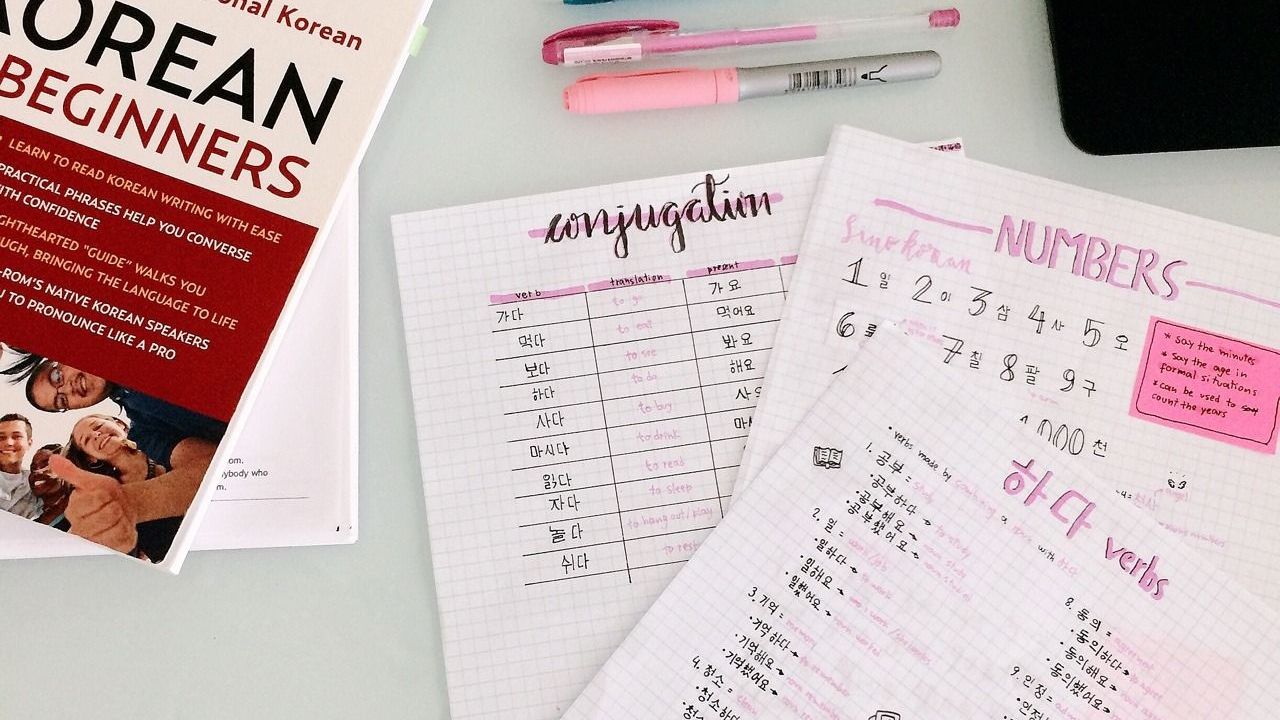 onal Korean
KOREAN
BEGINNERS
LEARN TO READ KOREAN WRITING WITH EASE
PRACTICAL PHRASES HELP YOU CONVERSE
WITH CONFIDENCE
GHTHEARTED "GUIDE" WALKS YOU
UGH, BRINGING THE LANGUAGE TO LIFE
-ROM'S NATIVE KOREAN SPEAKERS
U TO PRONOUNCE LIKE A PRO
om.
ybody who
m.
conjugation
verb translation present
가다 to go 가요
먹다 to eat 먹어요
보다 to see 봐요
하다 to do 해요
사다 to buy 사
마시다 to drink 마
읽다 to read
자다 to sleep
놀다 to hang out/play
쉬다 to rest
NUMBERS
Sino korean
1 일 2 이 3 삼 4 사 5 오
6 7 칠 8 팔 9 구
1,000 천
* say the minutes
* say the age in
formal situations
* can be used to say
count the years
하다 verbs
• verbs made by combining a noun with 하다
1. 공부 = study
• 공부하다 → to study
• 공부해요 →
• 공부했어요 →
2. 일 =
• 일하다 → to work
• 일해요 →
• 일했어요 →
3. 기억 = memory
• 기억하다 → to remember
• 기억해요 →
• 기억했어요 →
4. 청소 =
• 청소하다
8. 동의 = agreement
• 동의하다 →
• 동의해요 →
• 동의했어요 →
9. 인정 =
• 인정